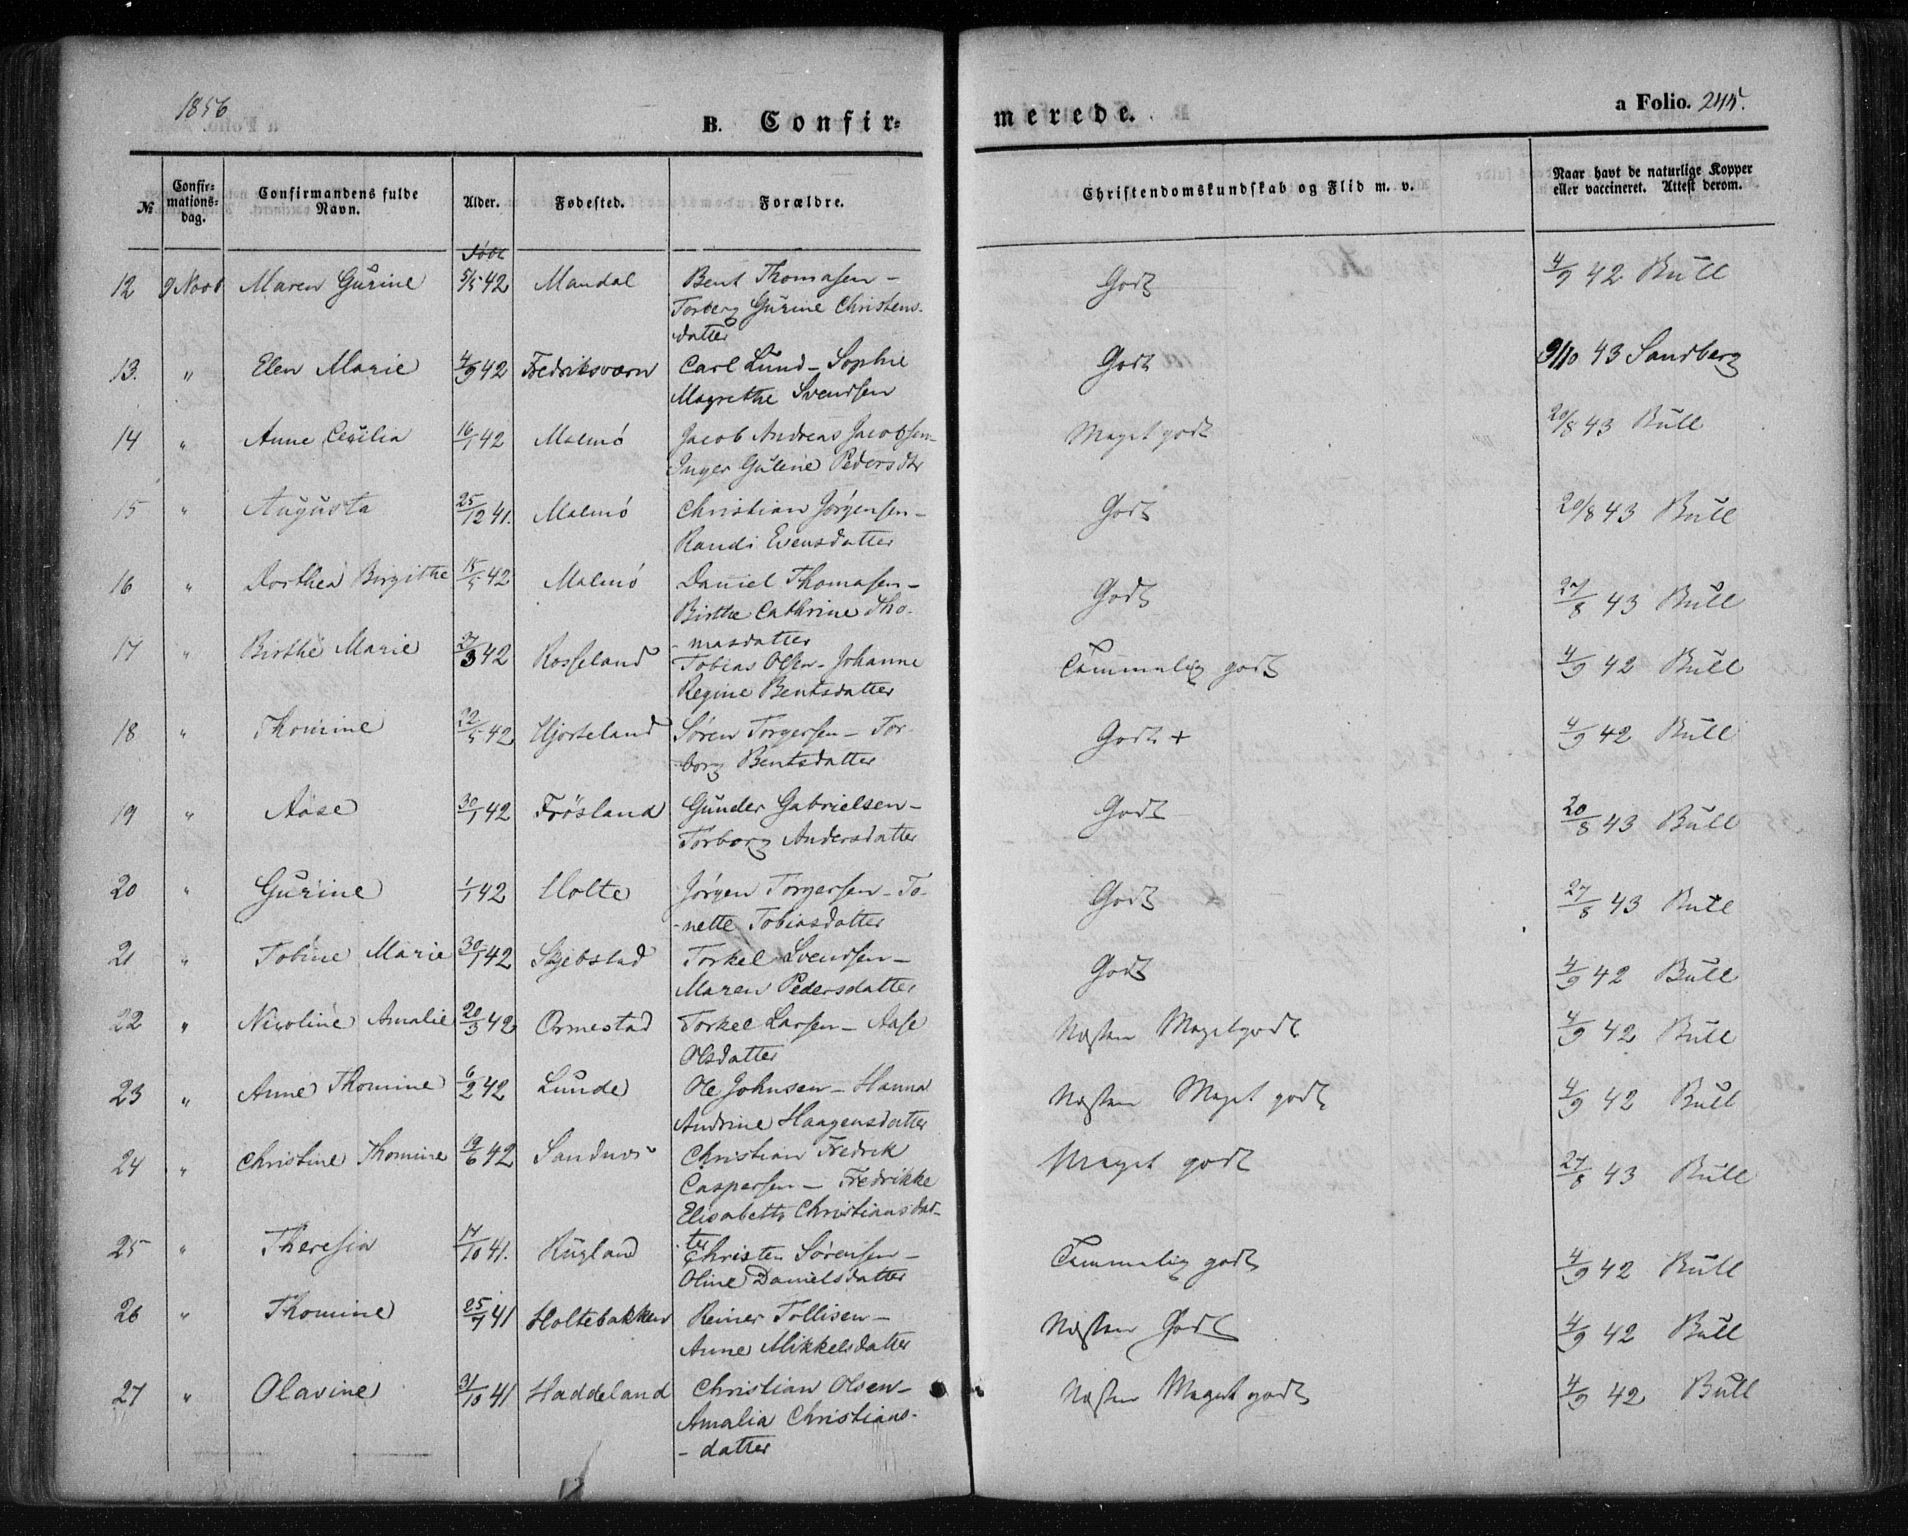 1856
B. Confir=
merede.
a Folio. 245.
№
Confir=
mations=
dag.
Confirmandens fulde
Navn.
Alder.
Fødested.
Forældre.
Christendomskundskab og Flid m. v.
Naar havt de naturlige Kopper
eller vaccineret. Attest derom.
født
12 9 Novb Maren Gŭrine 5/5 42 Mandal Bent Thomasen – Godt 4/9 42 Bŭll
Torberg Gŭrine Christens-
datter
13. " Elen Marie 4/9 42 Fredriksværn Carl Lŭnd – Sophie Godt 9/10 43 Sandberg
Magrethe Svendsen
14 " Anne Cecilia 16/1 42 Malmø Jacob Andreas Jacobsen – Meget godt 20/8 43 Bŭll
Inger Gŭline Pedersdtr
15 " Aŭgŭsta 25/12 41. Malmø Christian Jørgensen – Godt 20/8 43 Bŭll
Randi Evensdatter
16 " Dorthea Birgithe 15/5 42 Malmø Daniel Thomasen – Godt 27/8 43 Bŭll
Birthe Cathrine Tho-
- masdatter
17 " Birthe Marie 27/3 42 Rosseland Tobias Olsen – Johanne Temmelig godt 4/9 42 Bŭll
Regine Bentsdatter
18 " Thomine 22/5 42 Hjorteland Søren Torgersen – Tor- Godt + 4/9 42 Bŭll
borg Bentsdatter
19 " Aase 30/1 42 Frøsland Gŭnder Gabrielsen – Godt 20/8 43 Bŭll
Torborg Andersdatter
20 " Gŭrine 1/1 42 Holte Jørgen Torgersen – To- Godt 27/8 43 Bŭll
- nette Tobiasdatter
21 " Tobine Marie 30/1 42 Skjebstad Torkel Svendsen – Godt 4/9 42 Bŭll
Maren Pedersdatter
22 " Nicoline Amalie 20/3 42 Ormestad Torkel Larsen – Aase Næsten Meget godt 4/9 42 Bŭll
Olsdatter
23 " Anne Thomine 6/2 42 Lŭnde Ole Johnsen – Hanna Næsten Meget godt 4/9 42 Bŭll
Andrine Haagensdatter
24 " Christine Thomine 19/6 42 Sandnæs Christian Fredrik Meget godt 27/8 43 Bŭll
Caspersen – Fredrikke
Elisabeth Christiansdat-
ter
25 " Theresia 17/10 41. Rŭgland Christen Sørensen – Temmelig godt 4/9 42 Bŭll
Oline Danielsdatter
26 " Thomine 25/7 41 Holtebakken Reiner Tollisen – Næsten Godt 4/9 42 Bŭll
Anne Mikkelsdatter
27 " Olavine 31/10 41 Haddeland Christian Olsen – Næsten Meget godt 4/9 42 Bŭll
Amalia Christians-
- datter